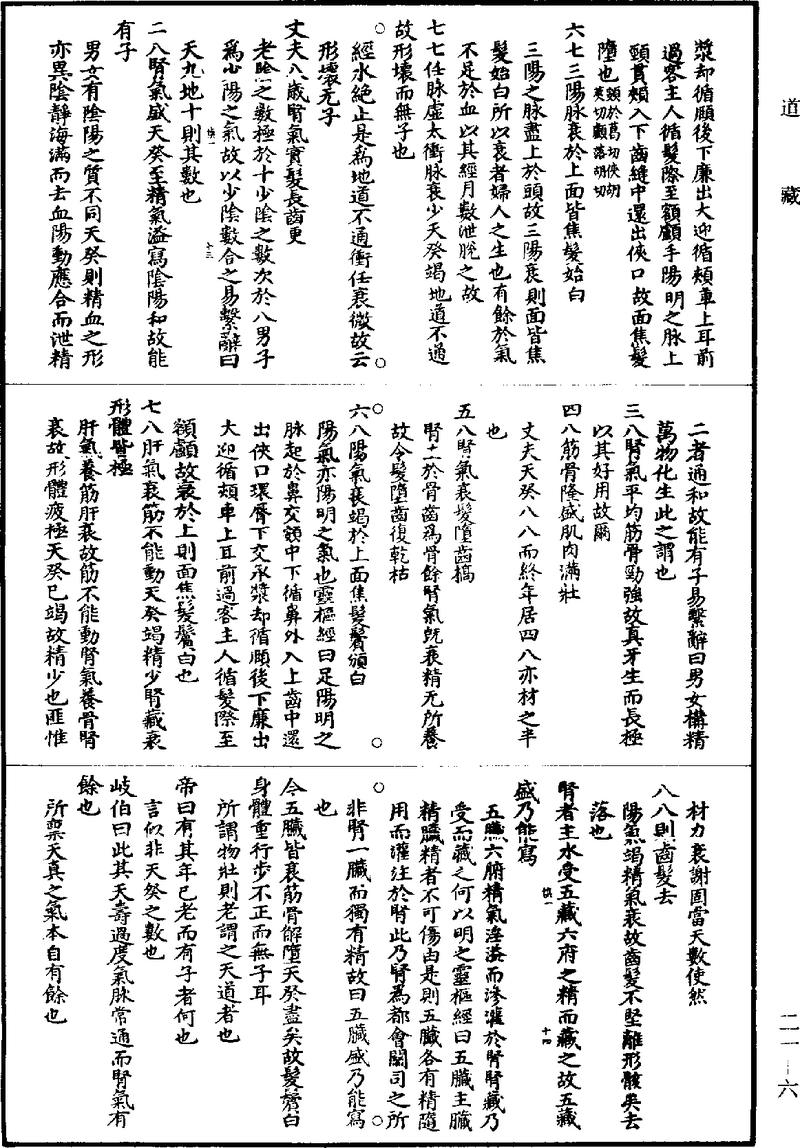 道藏
漿却循頤後下廉出大迎循頰車上耳前
過客主人循髮際至額顱手陽明之脉上
頸貫頰入下齒縫中還出俠口故面焦髮
墮也
六七三陽脉衰於上面皆焦髮始白
三陽之脉盡上於頭故三陽衰則面皆焦
髮始白所以衰者婦人之生也有餘於氣
不足於血以其經月數泄脫之故
七七任脉虛太衝脉衰少天癸竭地道不通
故形壞而無子也
經水絕止是爲地道不通衝任衰微故云
形壞无子
丈夫八歲腎氣實髮長齒更
老陰之數極於十少陰之數次於八男子
爲少陽之氣故以少陰數合之易繫辭曰
天九地十則其數也
二八腎氣盛天癸至精氣溢寫陰陽和故能
有子
男女有陰陽之質不同天癸則精血之形
亦異陰靜海滿而去血陽動應合而泄精
二者通和故能有子易繫辭曰男女構精
萬物化生此之謂也
三八腎氣平均筋骨勁強故真牙生而長極
以其好用故爾
四八筋骨隆盛肌肉滿壯
丈夫天癸八八而終年居四八亦材之半
也
五八腎氣衰髮墮齒槁
腎主於骨齒爲骨餘腎氣旣衰精无所養
故令髮墮齒復乾枯
六八陽氣衰竭於上面焦髮鬢頒白
陽氣亦陽明之氣也靈樞經曰足陽明之
脉起於鼻交頞中下循鼻外入上齒中還
出俠口環脣下交承漿却循頤後下廉出
大迎循頰車上耳前過客主人循髮際至
額顱故衰於上則面焦髮鬢白也
七八肝氣衰筋不能動天癸竭精少腎藏衰
形體皆極
肝氣養筋肝衰故筋不能動腎氣養骨腎
衰故形體疲極天癸已竭故精少也匪惟
材力衰謝固當天數使然
八八則齒髮去
陽氣竭精氣衰故齒髮不堅離形骸矣去
落也
腎者主水受五藏六府之精而藏之故五藏
盛乃能寫
五臟六腑精氣淫溢而滲灌於腎腎藏乃
受而藏之何以明之靈樞經曰五臟主臟
精臟精者不可傷由是則五臟各有精隨
用而灌注於腎此乃腎爲都會關司之所
非腎一臟而獨有精故曰五臟盛乃能寫
也
今五臟皆衰筋骨解墮天癸盡矣故髮鬢白
身體重行步不正而無子耳
所謂物壯則老謂之天道者也
帝曰有其年已老而有子者何也
言似非天癸之數也
岐伯曰此其天壽過度氣脉常通而腎氣有
餘也
所稟天真之氣本自有餘也
二一－六